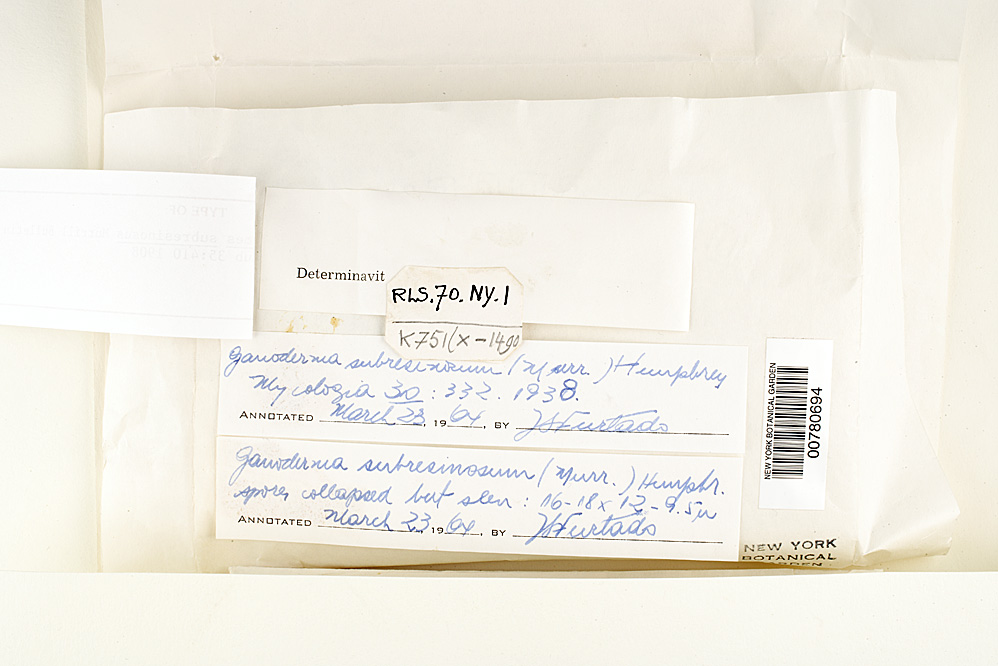 TYPE OF
subresinosus
35:410
Determinavit
RLS.70.NY.1
K751(x-1490
Ganoderma subresinosum (Murr.) Humphrey
Mycologia 30:332. 1938.
ANNOTATED March 23, 1964, BY JS Furtado
Ganoderma subresinosum (Murr.) Humphr.
spores collapsed but seen: 16-18 x 12-9.5µ
ANNOTATED March 23, 1964, BY JS Furtado
NEW YORK BOTANICAL GARDEN
00780694
NEW YORK
BOTANICAL
GARDEN